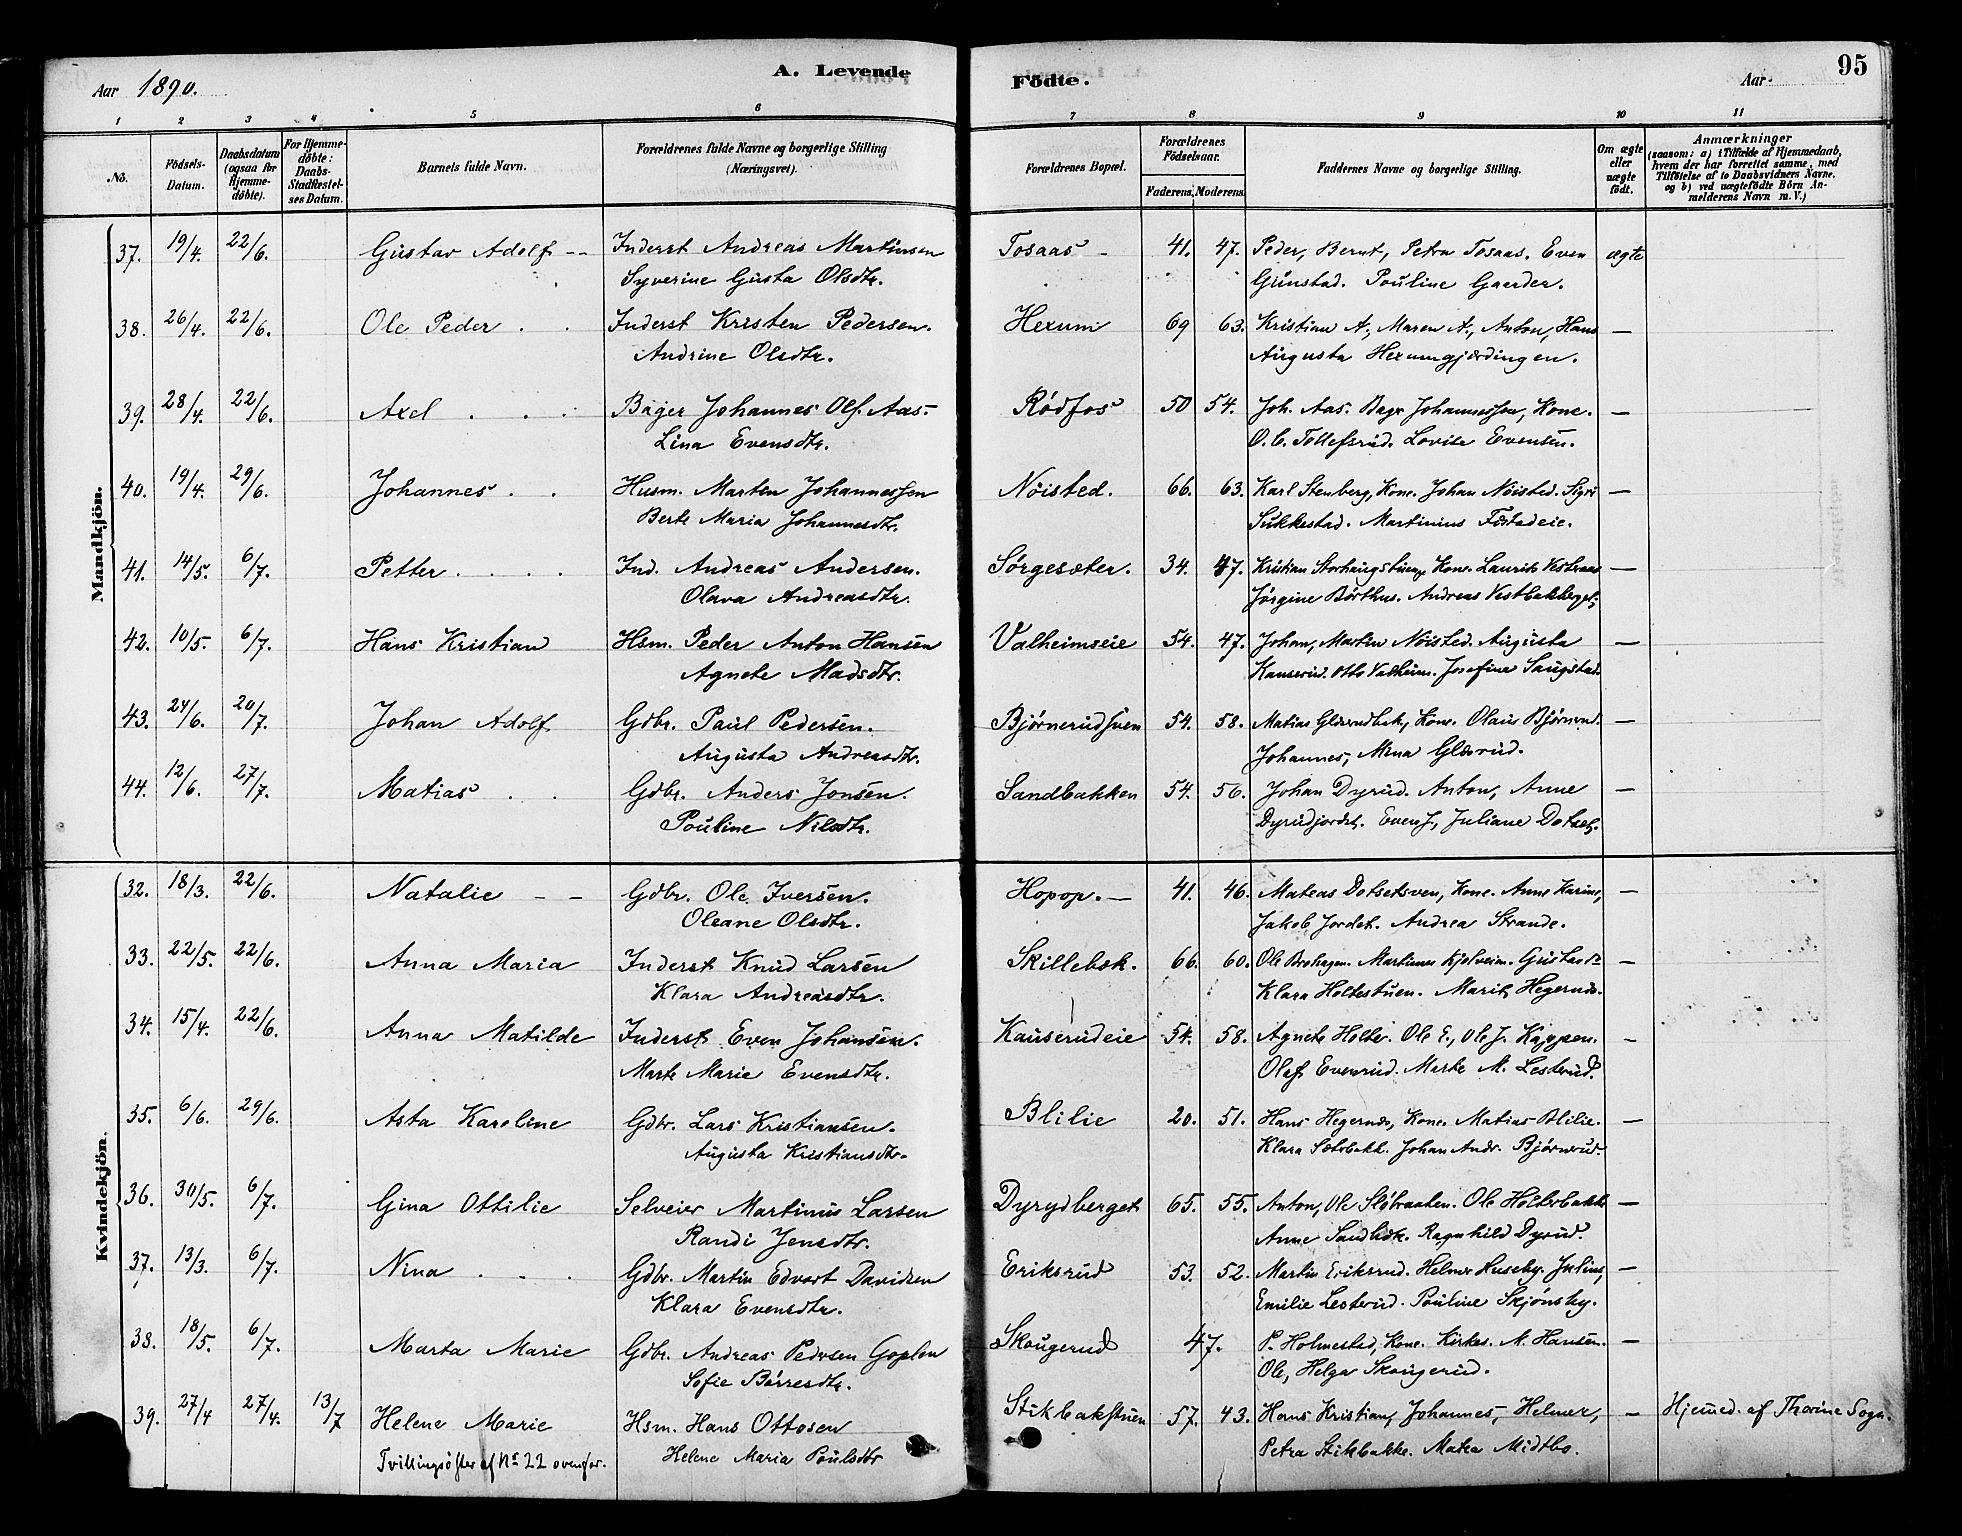 Aar 1890.
A. Levende Födte.
Aar
95
1 2 3 4 5 6 7 8 9 10 11
No.
Födsels-Datum.
Daabsdatum (ogsaa for Hjemme-döbte).
For Hjemme-döbte: Daabs-Stadfæstel-ses Datum.
Barnets fulde Navn.
Forældrenes fulde Navne og borgerlige Stilling (Næringsvei).
Forældrenes Bopæl.
Forældrenes Födselsaar.
Faderens. Moderens.
Faddernes Navne og borgerlige Stilling.
Om ægte eller uægte födt.
Anmærkninger
(saasom: a) i Tilfælde af Hjemmedaab,
hvem der har forrettet samme, med
Tilföielse af to Daabsvidners Navne.
og b) ved uægtefödte Börn An-
melderens Navn m. V.)
Mandkjön.
37. 19/4. 22/6. Gustav Adolf -- Inderst Andreas Martinsen Tosaas - 41. 47. Peder, Bernt, Petra Tosaas. Even ægte
Syverine Gusta Olsdtr. Gunstad. Pouline Gaarder.
38. 26/4. 22/6. Ole Peder . . Inderst Kristen Pedersen. Hexum 69 63. Kristian A., Maren A., Anton, Hans —
Andrine Olsdtr. Augusta Hexumgjærdingen.
39. 28/4. 22/6. Axel . . . Bager Johannes Ols. Aas. Rødfos 50 54. Joh. Aas. Bager Johannessen, Kone. —
Lina Evensdtr. O. C. Tollefsrud. Lovise Evensen.
40. 19/4. 29/6. Johannes . . Husm. Marten Johannessen Nöisted. 66. 63. Karl Stenberg, Kone. Johan Nöisted. Sigri —
Berte Maria Johannesdtr. Sukkestad. Martinius
41. 14/5. 6/7. Petter . . . . Ind. Andreas Andersen. Sörgesæter. 34. 47. Kristian Kone. Laurits —
Olava Andreasdtr. Jörgine Andreas
42. 10/5. 6/7. Hans Kristian Hsm. Peder Anton Hansen Valheimseie 54. 47. Johan, Martin Nöisted. Augusta —
Agnete Madsdtr. Kauserud. Otto Valheim. Josefine Saugstad.
43. 24/6. 20/7. Johan Adolf Gdbr. Paul Pedersen. Bjørnerudsven 54. 58. Matias Kone. Olaus Bjørnerud. —
Augusta Andreasdtr. Johannes, Mina Glæsrud.
44. 12/6. 27/7. Matias . . Gdbr. Anders Jonsen. Sandbakken 54. 56. Johan Dyrud. Anton, Anne —
Pouline Nilsdtr. Dyrudjordet. Even J., Juliane Dotset.
Kvindekjön.
32. 18/3. 22/6. Natalie - - Gdbr. Ole Iversen. Hopop. — 41. 46. Mateas Dotsetsven, Kone. Anne Karine, —
Oleane Olsdtr. Jakob Jordet. Andrea Strande.
33. 22/5. 22/6. Anna Maria Inderst Knud Larsen Skillebæk. 66. 60. Ole Brohagen. Martinus —
Klara Andreasdtr. Klara Holtestuen. Marit Hegernæs.
34. 15/4. 22/6. Anna Matilde Inderst Even Johansen. Kauserudeie 54. 58. Agnete Holte. Ole E., Ole J. Kappen. -
Marte Marie Evensdtr. Olaf Evenrud. Marte M. Lesterud.
35. 6/6. 29/6. Asta Kareline Gdbr. Lars Kristiansen. Blilie 20. 51. Hans Hegernæs, Kone. Matias Blilie. —
Augusta Kristiansdtr. Klara Sæterbakk. Johan Andr. Bjørnerud.
36. 30/5. 6/7. Gina Ottilie Selveier Martinus Larsen Dyrydberget 65. 55. Anton, Ole Ole Holtebakke —
Randi Jensdtr. Anne Ragnhild Dyrud.
37. 13/3. 6/7. Nina . . . Gdbr. Martin Edvart Davidsen Eriksrud 53. 52. Martin Eriksrud. Helmer Huseby. Julius, —
Klara Evensdtr. Emilie Lesterud. Pouline Skjönsby.
38. 18/5. 6/7. Marta Marie Gdbr. Andreas Pedersen Goplen Skougerud 47. P. Holmestad, Kone. Kirkes. A. Hansen. —
Sofie Börresdtr. Ole, Helga Skougerud.
39. 27/4 27/4. 13/7 Helene Marie Hsm. Hans Ottosen Stikbakstuen 57. 43. Hans Kristian, Johannes, Helmer, — Hjemmed. af Thorine Sogn.
Tvillingsöster af No 22 ovenfor. Helene Maria Poulsdtr Petra Stikbakke. Matea Midtbo.